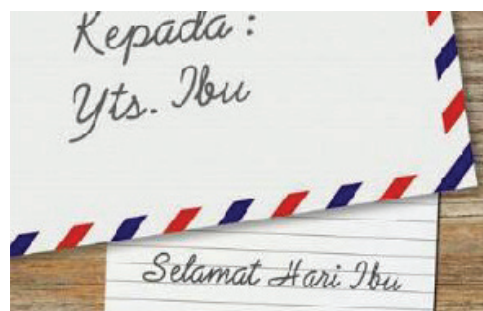 Kepada :
Yts. Ibu
Selamat Hari Ibu